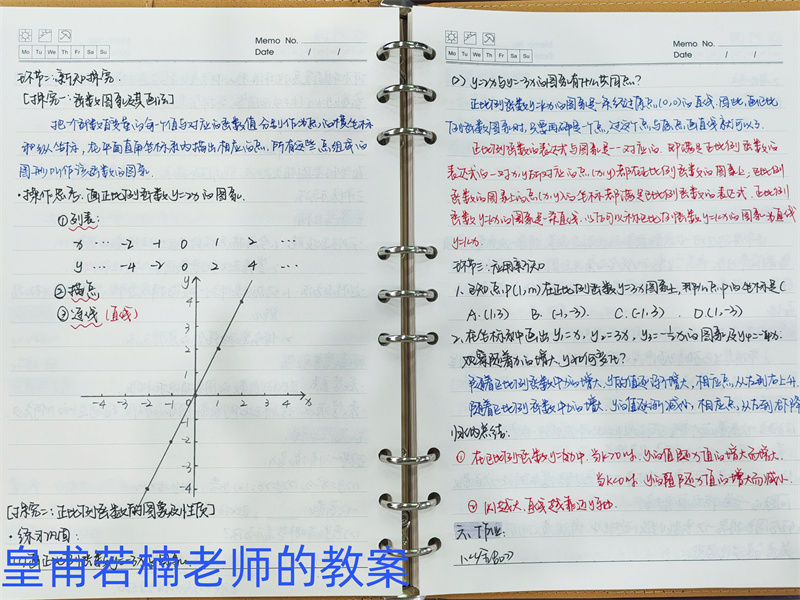 Memo No.
Mo Tu We Th Fr Sa Su
Date / /
环节二:新知探究.
[探究一:函数图象及其画法]
把一个函数自变量的每一个值与对应的函数值分别作为点的横坐标
和纵坐标,在平面直角坐标系内描出相应的点,所有这些点组成的
图形叫作该函数的图象.
·操作思考:画正比例函数y=2x的图象.
①列表:
x … -2 -1 0 1 2 …
y … -4 -2 0 2 4 …
②描点
③连线(直线)
y
4
3
2
1
-4 -3 -2 -1 0 1 2 3 4 x
-1
-2
-3
-4
[探究二:正比例函数的图象及性质]
·练习巩固:
皇甫若楠老师的教案
Memo No.
Mo Tu We Th Fr Sa Su
Date / /
(2) y=2x与y=-3x的图象有什么共同点?
正比例函数y=kx的图象是一条经过原点(0,0)的直线.因此,画正比
例函数图象时,只要再确定一个点,过这个点与原点画直线就可以了.
正比例函数的表达式与图象是一一对应的.即满足正比例函数的
表达式的一对x,y所对应的点(x,y)都在正比例函数的图象上,正比例
函数的图象上的点(x,y)的坐标都满足正比例函数的表达式.正比例
函数y=kx的图象是一条直线,以后可以称正比例函数y=kx的图象为直线
y=kx.
环节三:应用新知
1.已知点P(1,m)在正比例函数y=3x图象上,那么点P的坐标是(
A.(1,3) B.(-1,-3). C.(-1,3). D.(1,-3)
2.在坐标系中画出y₁=x, y₂=3x, y₃=-½x的图象及y₄=-4x.
观察随着x的增大,y如何变化?
随着正比例函数中x的增大,y的值逐渐增大,相应点从左到右上升.
随着正比例函数中x的增大,y的值逐渐减小,相应点从左到右下降
归纳总结:
①在正比例函数y=kx中,当k>0时,y的值随x值的增大而增大.
当k<0时,y的值随x值的增大而减小.
②|k|越大,直线越靠近y轴.
六、作业: